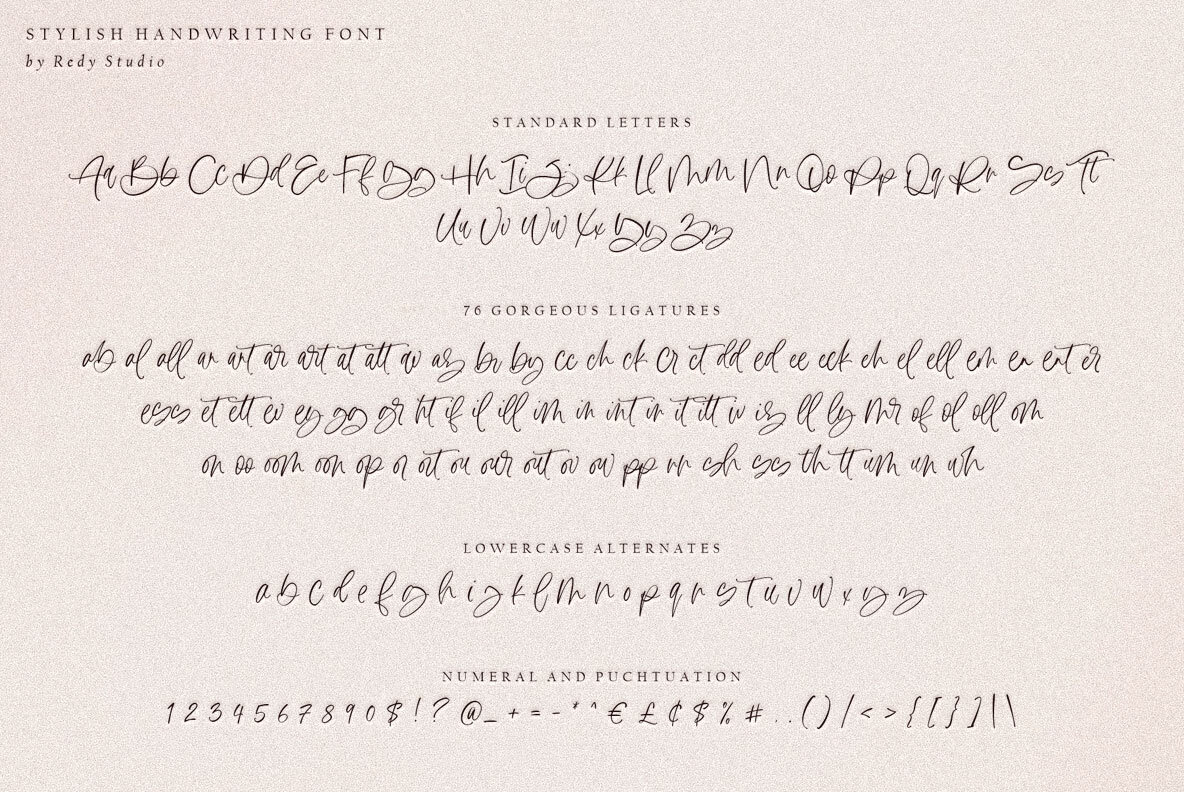 STYLISH HANDWRITING FONT
by Redy Studio
STANDARD LETTERS
Aa Bb Cc Dd Ee Ff Gg Hh Ii Jj Kk Ll Mm Nn Oo Pp Qq Rr Ss Tt
Uu Vv Ww Xx Yy Zz
76 GORGEOUS LIGATURES
ab al all an ant ar art at att av as br by cc ch ck cr ct dd ed ee eck eh el ell em en ent er
ess et ett ev ey gg gr ht if il ill im in int ir it itt iv is ll ly mr of ol oll om
on oo oom oon op or ot ou our out ov ow pp rr sh ss th tt um un wh
LOWERCASE ALTERNATES
a b c d e f g h i j k l m n o p q r s t u v w x y z
NUMERAL AND PUCHTUATION
1 2 3 4 5 6 7 8 9 0 $ ! ? @ _ + = - * ^ € £ ¢ $ % # . . ( ) / < > { [ } ] | \